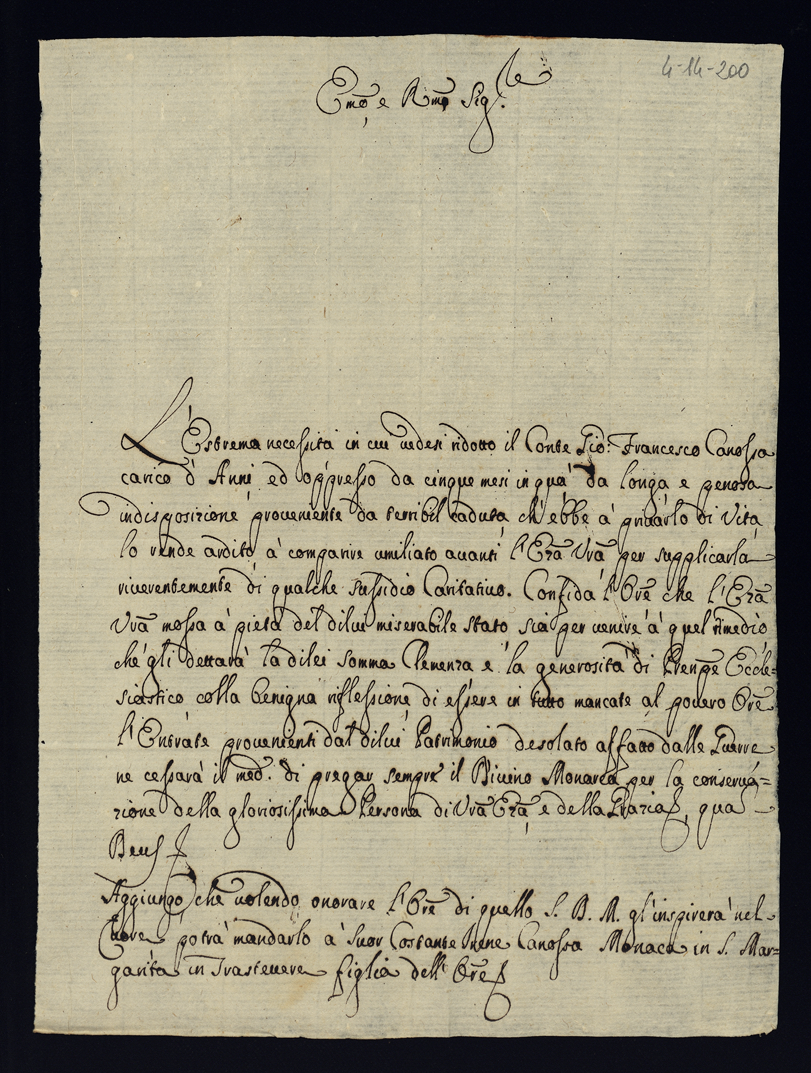 4-14-200
Emo e Rmo Sigle.
L'Estrema necessità in cui vedesi ridotto il Conte Gio: Francesco Canossa
carico d'Anni ed oppresso da cinque mesi in quà da longa e penosa
indisposizione proveniente da terribil caduta, ch'ebbe à privarlo di Vita
lo rende ardito à comparire umiliato avanti l'Eza Vra per supplicarla
riverentemente di qualche sussidio Caritativo. Confida l'Ore che l'Eza
Vra mossa à pietà del dilui miserabile stato sia per venire à quel rimedio
che gli dettarà la dilei somma Clemenza e la generosità di Prenpe Eccle=
siastico colla benigna riflessione di essere in tutto mancate al povero Ore
l'Entrate provenienti dal dilui Patrimonio desolato affatto dalle Guerre
ne cessarà il med. di pregar sempre il Divino Monarca per la conserva=
zione della gloriosissima Persona di Vra Eza, e della Grazia, qua
Deus
Aggiungo, che volendo onorare l'Ore di quello S. D. M. gl'inspirerà nel
Cuore potrà mandarlo à Suor Costante Irene Canossa Monaca in S. Mar=
garita in Trastevere figlia dell'Ore